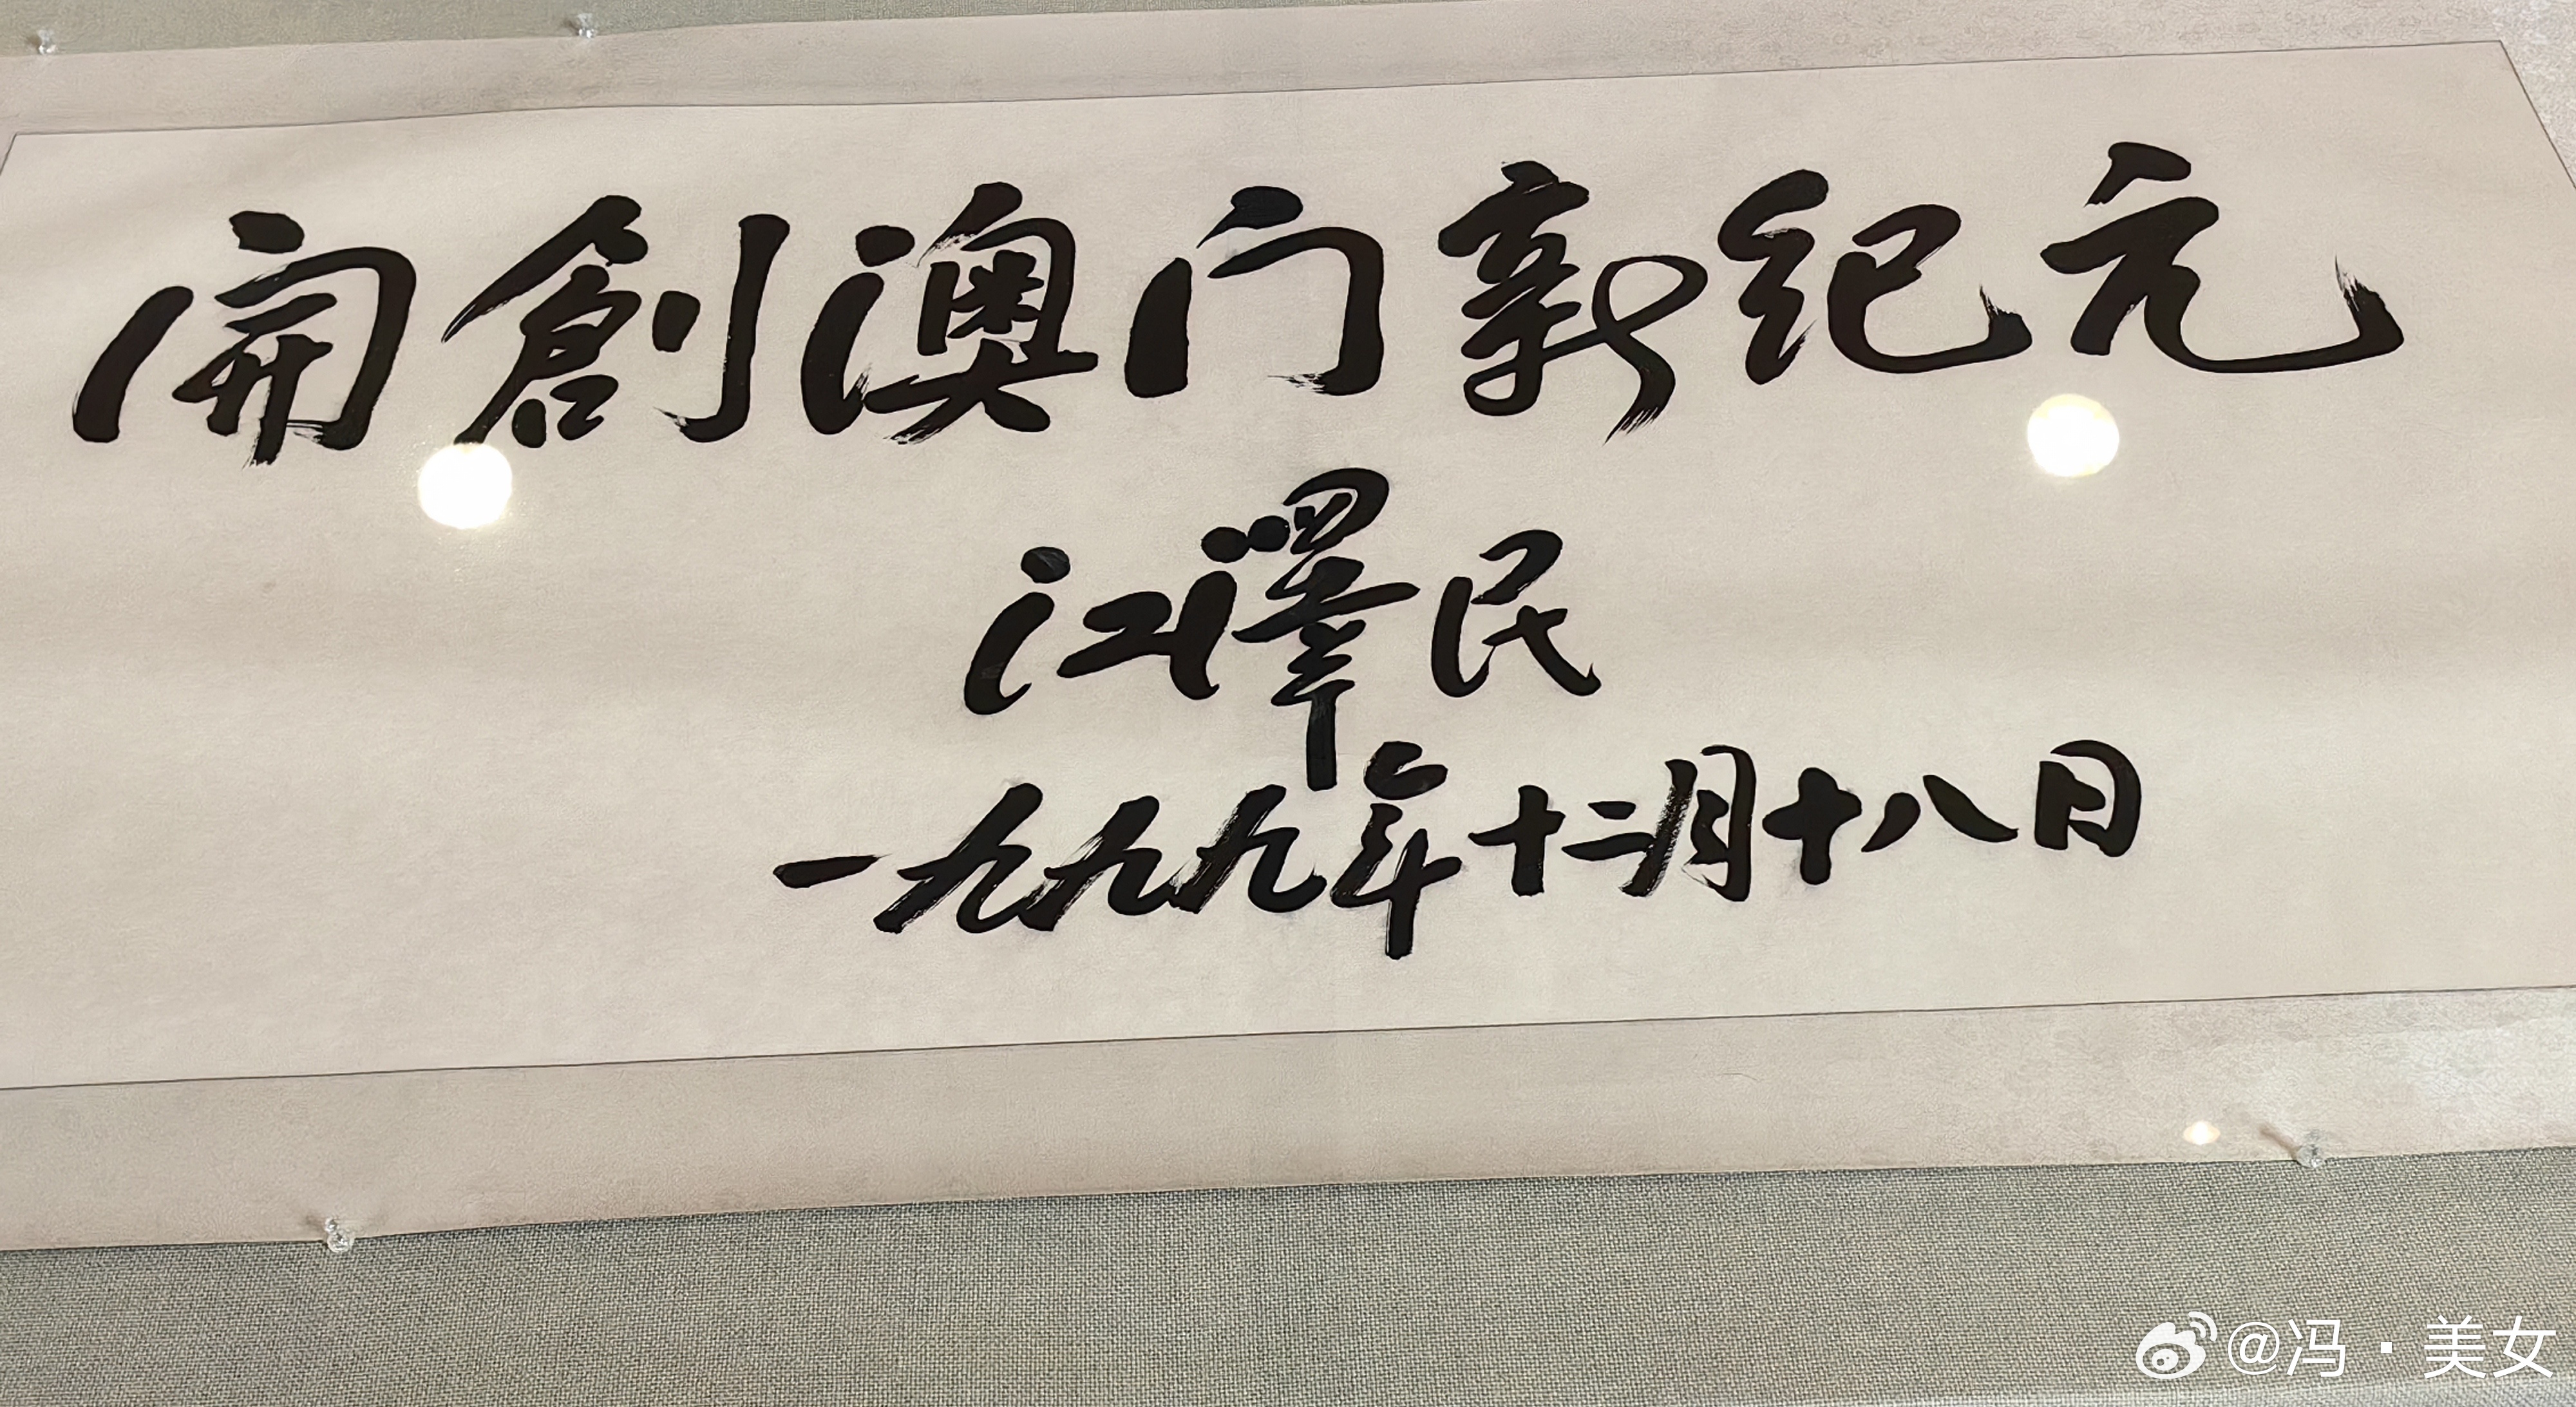 開創澳门新纪元
江澤民
一九九九年十二月十八日
@冯·美女